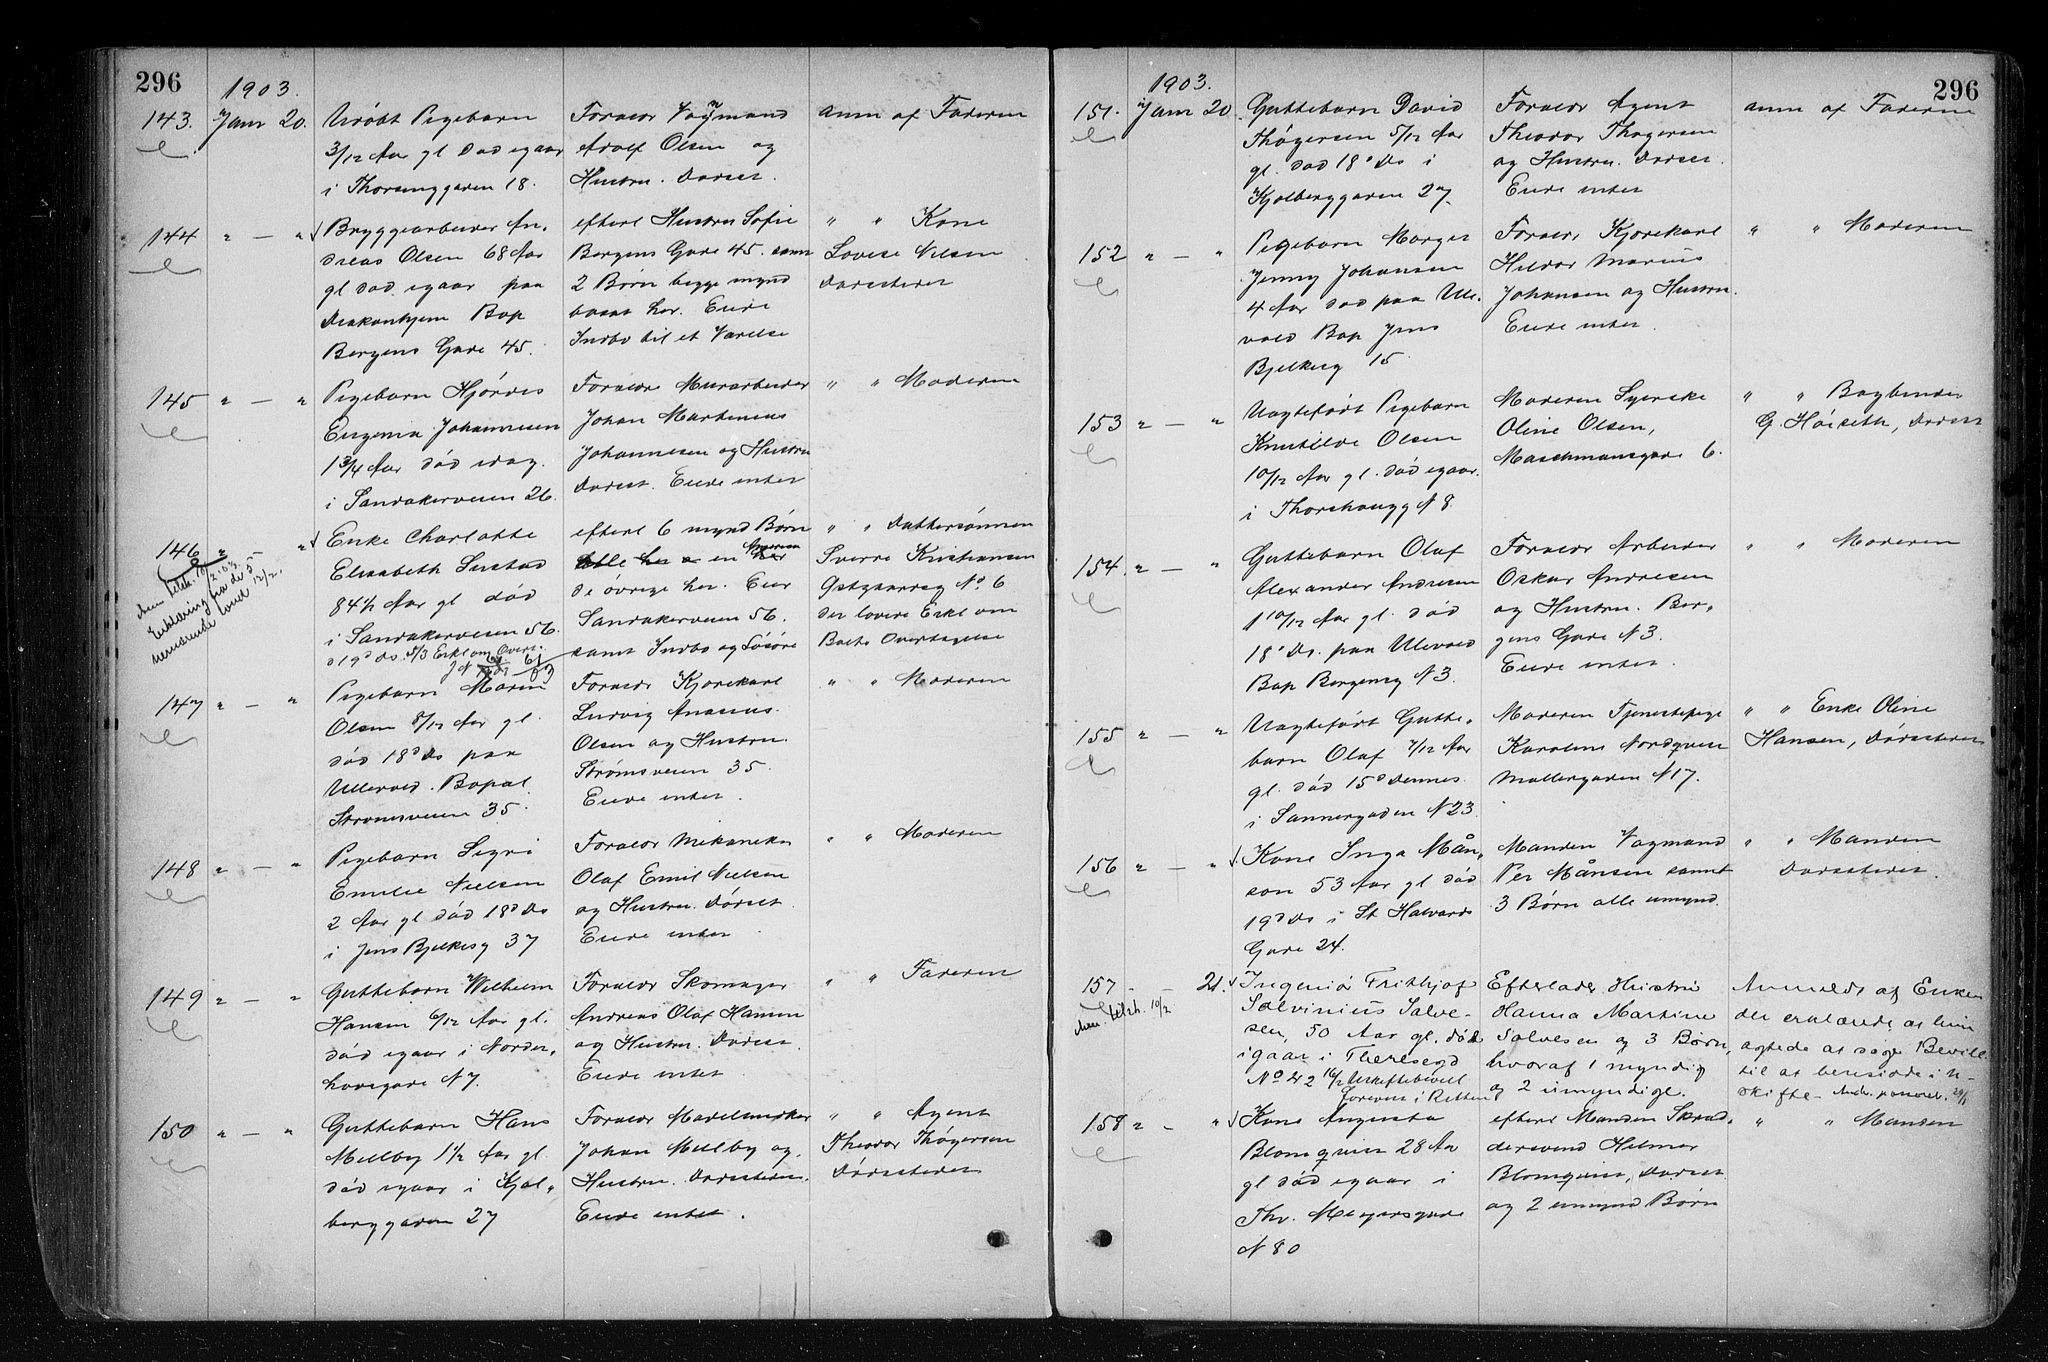 296
1903.
143. Janr 20. Udøbt Pigebarn
3/12 Aar gl død igaar
i Thorsenggaden 18.
Forældr Vognmand
Adolf Olsen og
Hustru. Dødsst.
anm af Faderen
144 " — " Bryggearbeider An-
dreas Olsen 68 Aar
gl død igaar paa
Diakonhjem Bop
Bergens Gade 45.
efterl Hustru Sofie
Bergens Gade 45. samt
2 Børn begge mynd
bosat her. Eiede
Indbo til et Værelse
" " Kone
Lovise Nilsen
Dødsstedet
145 " — " Pigebarn Hjørdis
Eugenia Johannesen
1 3/4 Aar død idag
i Sandakerveien 26.
Forældre Murarbeider
Johan Martinius
Johannesen og Hustru
Dødsst. Eiede intet
" " Moderen
146 " " Enke Charlotte
Elisabeth Sustad
84½ Aar gl død
i Sandakerveien 56.
d 19d Ds. 5/3 Erkl om Overt.
efterl 6 mynd Børn
alle her en Amerika
de øvrige her. Eier
Sandakerveien 56.
samt Indbo og Løsøre
" " Dattersønnen
Sverre Kristiansen
Østgaardsg No 6
der lovede Erkl om
Boets Overtagelse
147 " — " Pigebarn Marie
Olsen 8/12 Aar gl.
død 18d Ds paa
Ullevold. Bopæl
Strømsveien 35.
Forældr Kjørekarl
Ludvig Anasius
Olsen og Hustru.
Strømsveien 35.
Eiede intet.
" " Moderen
148 " — " Pigebarn Sigri
Emilie Nielsen
2 Aar gl død 18d Ds
i Jens Bjelkesg 37
Forældr Mekaniker
Olaf Emil Nielsen
og Hustru. Dødsst.
Eiede intet
" " Moderen
149 " — " Guttebarn Wilhelm
Hansen 6/12 Aar gl.
død igaar i Norder-
hovsgade N 7.
Forældr Skomager
Andreas Olaf Hansen
og Hustru. Dødsst.
Eiede intet
" " Faderen
150 " — " Guttebarn Hans
Mellby 1½ Aar gl.
død igaar i Kjøl-
berggaden 27
Forældr Maskinsmed
Johan Mellby og
Hustru. Dødsstedet.
Eiede intet.
" " Agent
Theodor Thøgersen
Dødsstedet
296
1903.
151. Janr 20. Guttebarn David
Thøgersen 5/12 Aar
gl. død 18d Ds i
Kjølberggaden 27.
Forældr Agent
Theodor Thøgersen
og Hustru. Dødsst.
Eiede intet
anm af Faderen
152 " — " Pigebarn Margit
Jenny Johansen
4 Aar død paa Ulle-
vold Bop Jens
Bjelkesg 15
Forældr Kjørekarl
Hildor Marius
Johansen og Hustru.
Eiede intet.
" " Moderen
153 " — " Uægtefødt Pigebarn
Knutilde Olsen
10/12 Aar gl. død igaar
i Thorshaugg N 8.
Moderen Syerske
Oline Olsen,
Maschmansgade 6.
" " Bogbinder
G. Høiseth, Dødsst
154. " — " Guttebarn Olaf
Alexander Andresen
1 10/12 Aar gl. død
18d Ds. paa Ullevold
Bop Bergensg N 3.
Forældr Arbeider
Oskar Andresen
og Hustru. Ber-
gens Gade N 3.
Eiede intet.
" " Moderen
155 " — " Uægtefødt Gutte-
barn Olaf 7/12 Aar
gl. død 15d dennes
i Sannergaden N 23.
Moderen Tjenestepige
Karoline Nordqvist
Møllergaden N 17.
" " Enke Oline
Hansen, Dødsstedet
156 " — " Kone Inga Mån-
son 53 Aar gl død
19d Ds i St Halvards
Gade 24.
Manden Vognmand
Per Månsen samt
3 Børn alle umynd.
" " Manden
Dødsstedet.
157 — 21. Ingeniør Frithjof
Salvinius Salve-
sen, 50 Aar gl. død
igaar i Theresegd
No 42 16/2 Uskiftebevill
foreviist i Retten
Efterlader Hustru
Hanna Martine
Salvesen og 3 Børn,
hvoraf 1 myndig
og 2 umyndige.
Anmeldt af Enken
der erklærede at hun
agtede at søge Bevill.
til at besidde i U-
skifte.
158 " — " Kone Augusta
Blomqvist 28 Aar
gl død igaar i
Thv. Meyersgade
N 80
efterl Manden Skræd-
dersvend Hilmar
Blomqvist, Dødsst
og 2 umynd Børn
" " Manden